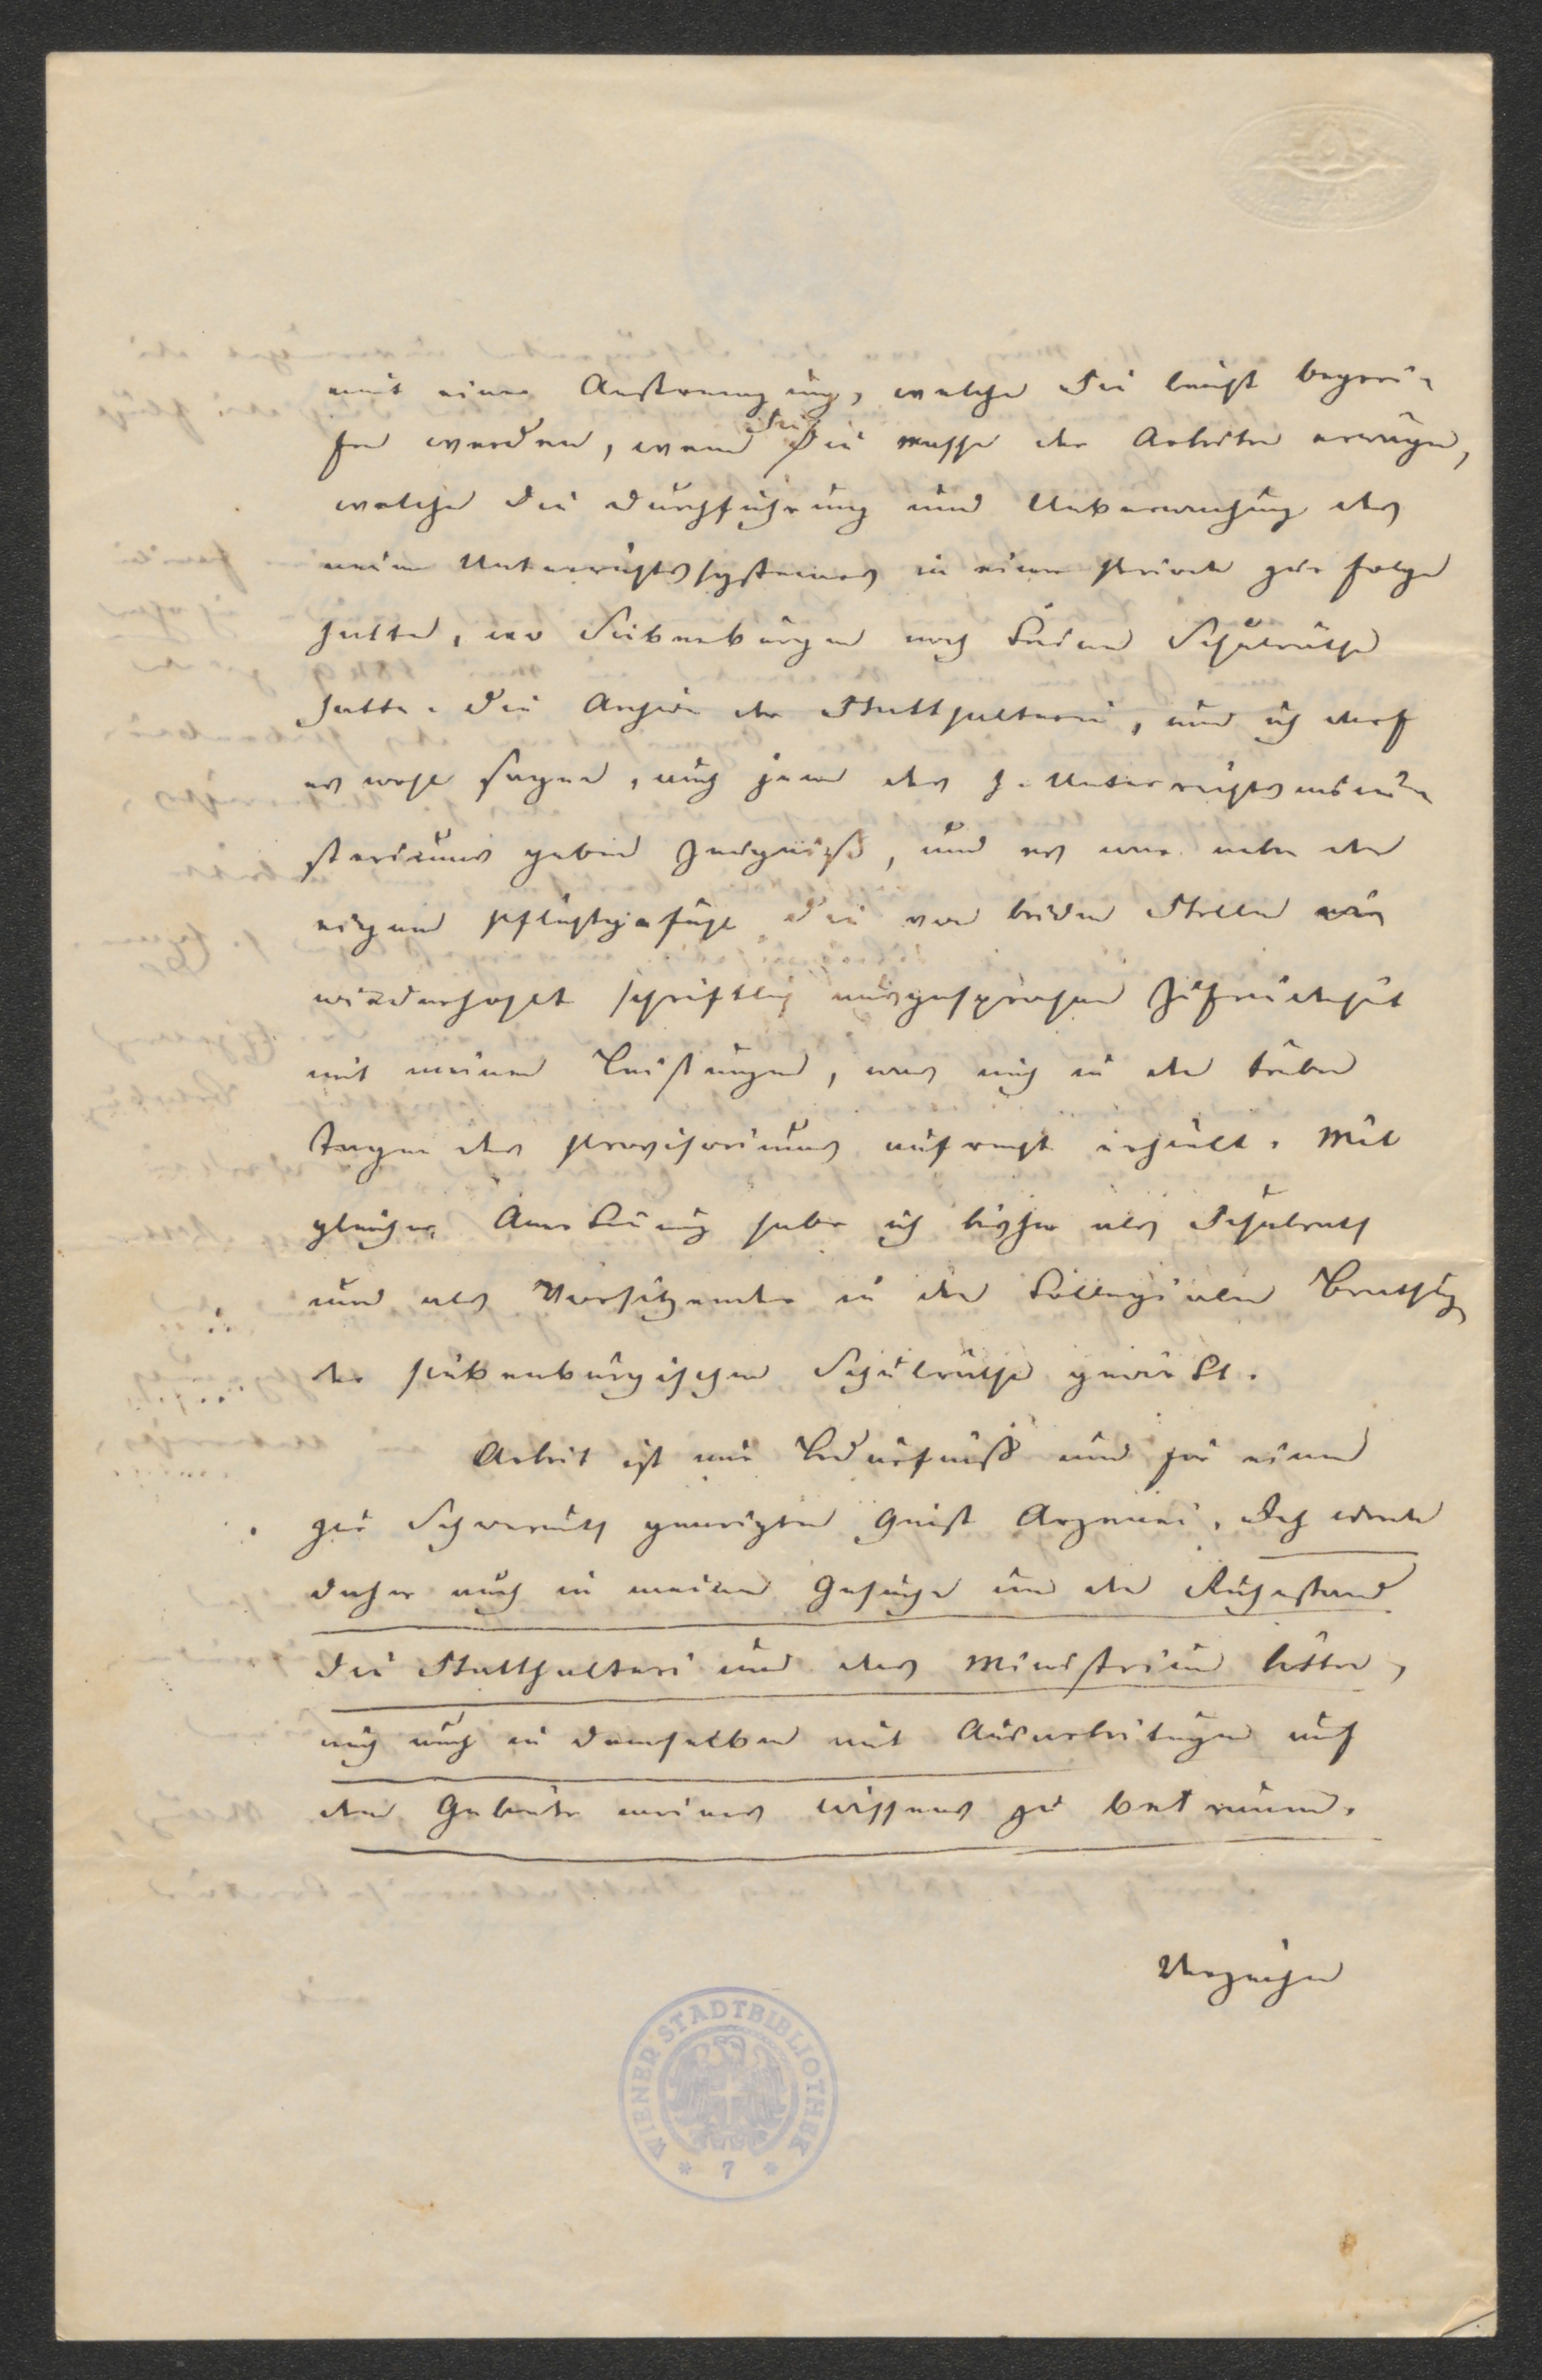 mit einer Anstrengung, welche Sie leicht begrei-
fen werden, wenn Sie die Masse der Arbeiten erwägen,
welche die Durchführung und Ueberwachung des
neuen Unterrichtssystemes in einer Periode zur Folge
hatte, wo Siebenbürgen noch keinen Schulrathe
hatte. Die Archive der Statthalterei, und ich darf
es wohl sagen, auch jene des h. Unterrichtsmini-
steriums geben Zeugniß, und es war nebe dem
eigenen Pflichtgefühl die von beiden Stellen
wiederholt schriftlich ausgesprochene Zufriedenheit
mit meinen Leistungen, was mich in den trüben
Tagen des Provisoriums aufrecht erhielt. Mit
gleicher Anerkennung habe ich bisher als Schulrath
und als Vorsitzender in den Collegialen Berathung
der siebenbürgischen Schulräthe gewirkt.
Arbeit ist mir Bedürfniß und für einen
zur Schwermuth geneigten Geist Arznei. Ich werde
daher auch in meinem Gesuche um den Ruhestand
die Statthalterei und das Ministerium bitten,
mich auch in demselben mit Ausarbeitungen auf
dem Gebiete meines Wissens zu betrauen.
Verzeihen
WIENER STADTBIBLIOTHEK
* 7 *